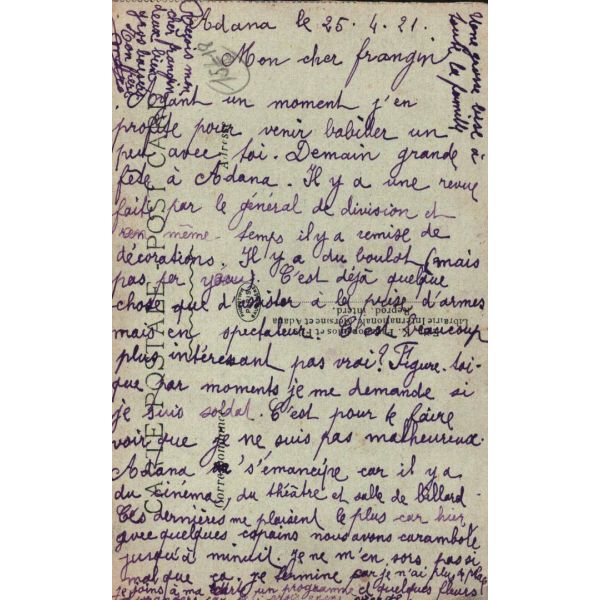 Adana le 25.4.21.
Mon cher frangin
Ayant un moment j'en
profite pour venir babiller un
peu avec toi. Demain grande
fête à Adana. Il y a une revue
faite par le général de division et
en même temps il y a remise de
décorations. Il y a du boulot (mais
pas for you). C'est déjà quelque
chose que d'assister à la prise d'armes
mais en spectateur. C'est beaucoup
plus intéressant pas vrai? Figure-toi
que par moments je me demande si
je suis soldat. C'est pour te faire
voir que je ne suis pas malheureux.
Adana s'émancipe car il y a
du cinéma, du théâtre et salle de billard
Ces dernières me plaisent le plus car hier
avec quelques copains nous avons carambolé
jusqu'à minuit. Je ne m'en sors pas si
mal que ça. Je termine car je n'ai plus de place
Je joins à ma carte un programme et quelques fleurs
Reçois mon
cher frangin
deux bien
gros baisers
Ton frère
Une grosse bise à
toute la famille
CARTE POSTALE POST CARD
Correspondance
Adresse
Librairie Internationale Mersine et Adana
Reprod. interd.